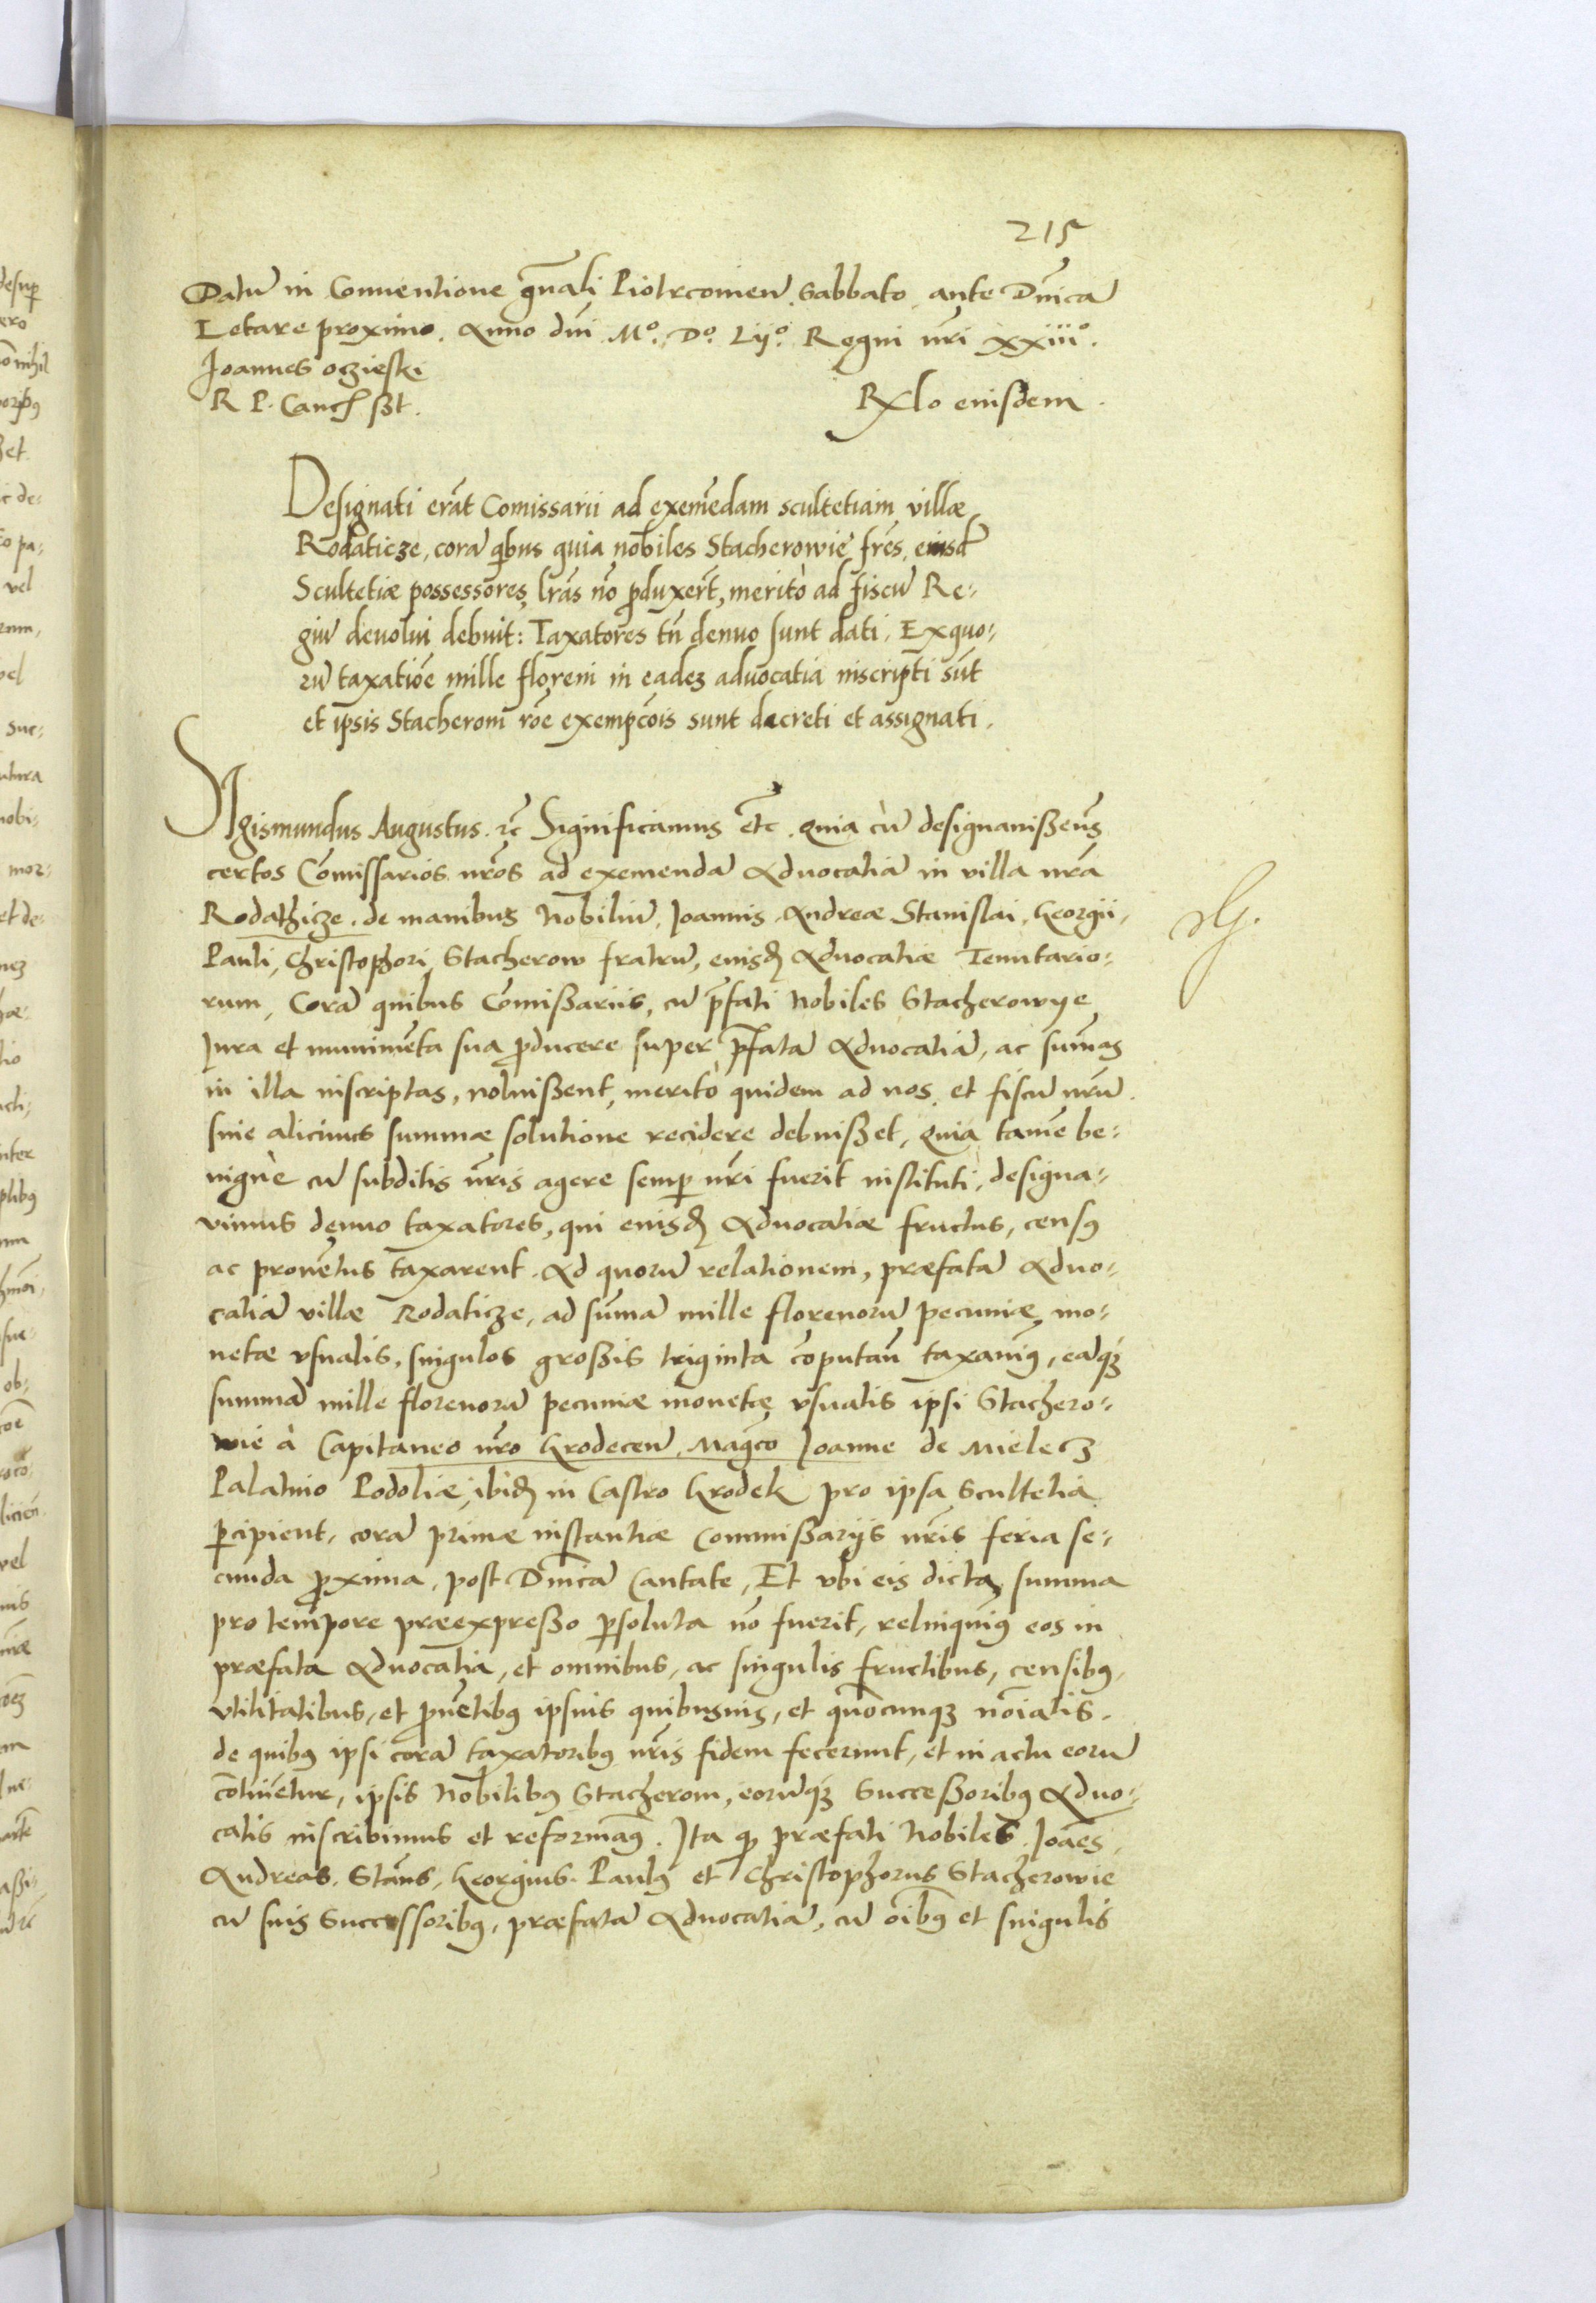 215
Datū in Conuentione gn̄ali Piotrcouien̄ Sabbato ante Dn̄icā
Letare proximo. Anno dn̄i M°. D°. Lij°. Regni nr̄i xxiii°.
Joannes oczieski
R P. Canc̄ sst.
Rx̄lo eiusdem.
Designati erāt Com̄issarii ad exemēdam scultetiam villæ
Rodaticze, corā qbus quia nobiles Stacherowie frēs, eiusd̄
Scultetiæ possessores, lrās nō pduxert̄, meritò ad fiscū Re⸗
giū deuolui debuit: Taxatores tn̄ denuo sunt dati. Exquo⸗
rū taxatiōe mille floreni in eadez aduocatia inscripti sūt
et ipsis Stacherom rōe exempcōis sunt decreti et assignati.
Sigismundus Augustus. ꝛc̄ Significamus etc̄. quia cū designauissem9
certos Com̄issarios nrōs ad exemendā Aduocatiā in villa nrā
Rodathicze. de manibus Nobiliū. Joannis. Andreæ Stanislai. Georgii,
Pauli, Christophori, Stacherow fratrū, eiusd̄ Aduocatiæ Tenutario⸗
rum, Corā quibus Com̄issariis, cū p̄fati Nobiles Stacherowye
Jura et munimēta sua pducere super p̄fatā Aduocatiā, ac sum̄as
in illa inscriptas, noluissent, meritò quidem ad nos, et fiscū nrūm
sine alicuius summæ solutione recidere debuisset, quia tamē be⸗
nignè cū subditis nr̄is agere semp nr̄i fuerit instituti, designa⸗
uimus denuo taxatores, qui eiusd̄ Aduocatiæ fructus, cens9
ac prouētus taxarent. Ad quorū relationem, præfatā Aduo⸗
catiā villæ Rodaticze, ad sum̄ā mille florenorū pecuniæ mo⸗
netæ vsualis, singulos grossis triginta cōputan̄ taxauim9, eāq3
summā mille florenorū pecuniæ monetæ vsualis ipsi Stachero⸗
wie à Capitaneo nr̄o Grodecen̄. Mag̃co Joanne de Mielecz
Palatino Podoliæ, ibid̄ in Castro Grodek pro ipsa Scultetia
pcipient, corā primæ instantiæ Commissarijs nr̄is feria se⸗
cunda pxima, post Dn̄icā Cantate, Et vbi eis dicta summa
pro tempore præexpresso psoluta nō fuerit, relinquim9 eos in
præfata Aduocatia, et omnibus, ac singulis fructibus, censib9,
vtilitatibus, et puētib9 ipsius quibusuis, et quōcunq3 nōiatis.
de quib9 ipsi corā taxatorib9 nr̄is fidem fecerunt, et in actu eorū
cōtinētur, ipsis Nobilib9 Stacherom, eorūq3 Successorib9 Aduo⸗
catis inscribimus et reformam9. Ita q̄ præfati Nobiles. Joaēs,
Andreas. Stān̄s. Georgius. Paul9 et Christophorus Stacherowie
cū suis Successorib9, præfatā Aduocatiā, cū oīb9 et singulis